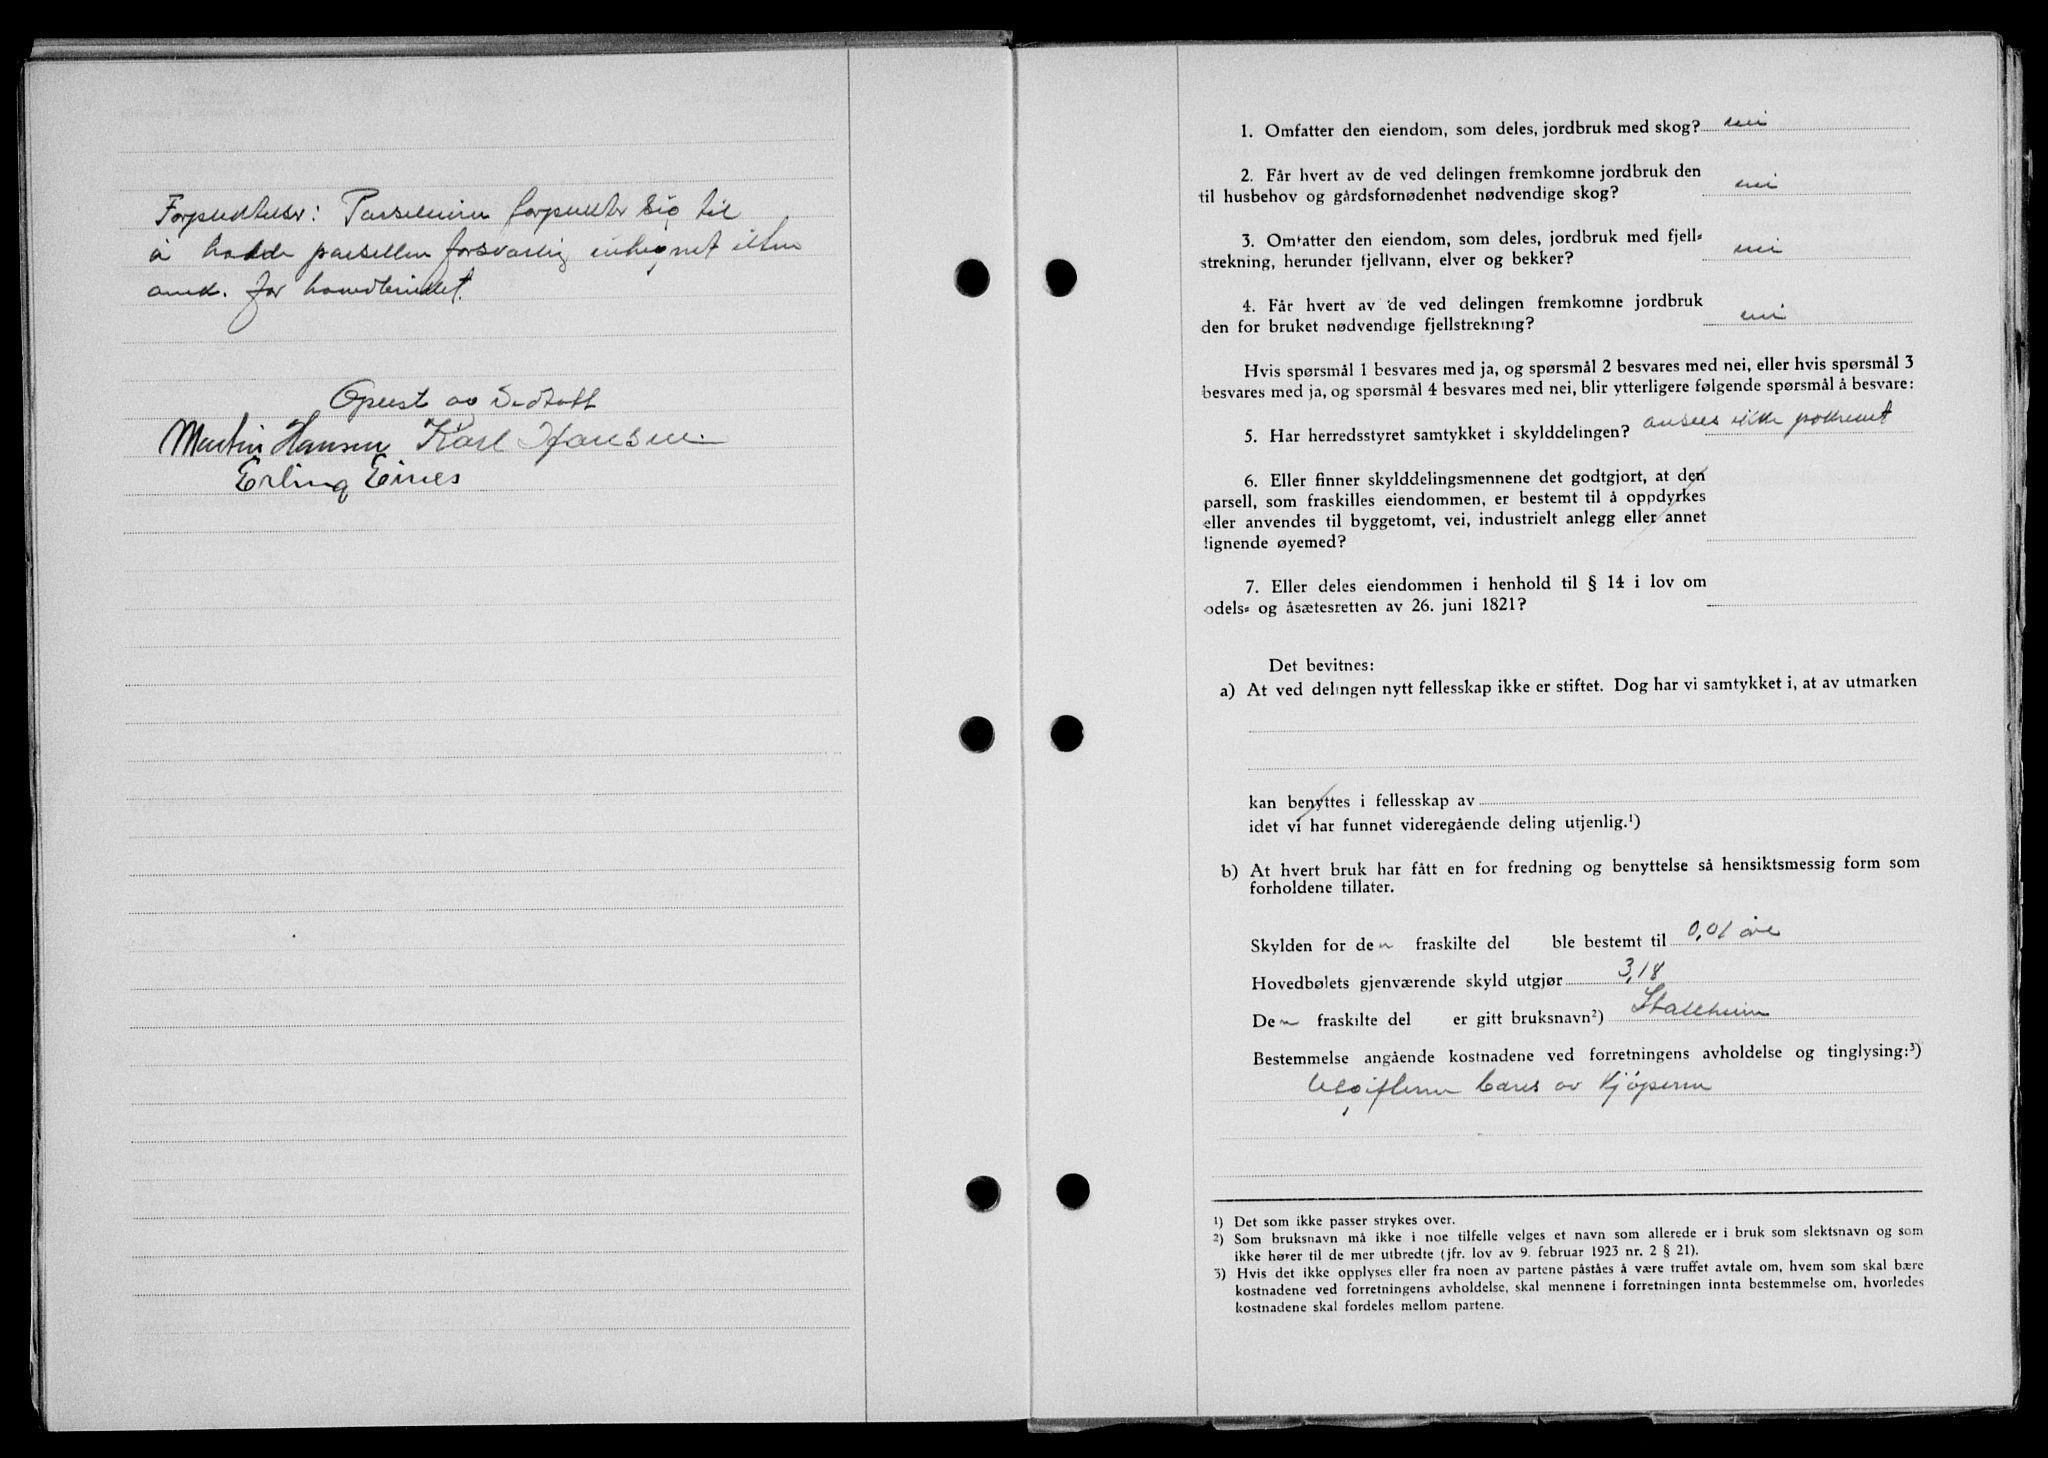 Forpliktelser: Parselleieren forplikter sig til
å holde parsellen forsvarlig innhegnet uten
ans. for hovedbruket.
Oplest og vedtatt
Martin Hansen Karl Hansen.
Erling Eines
1. Omfatter den eiendom, som deles, jordbruk med skog? nei
2. Får hvert av de ved delingen fremkomne jordbruk den
til husbehov og gårdsfornødenhet nødvendige skog? nei
3. Omfatter den eiendom, som deles, jordbruk med fjell-
strekning, herunder fjellvann, elver og bekker? nei
4. Får hvert av de ved delingen fremkomne jordbruk
den for bruket nødvendige fjellstrekning? nei
Hvis spørsmål 1 besvares med ja, og spørsmål 2 besvares med nei, eller hvis spørsmål 3
besvares med ja, og spørsmål 4 besvares med nei, blir ytterligere følgende spørsmål å besvare:
5. Har herredsstyret samtykket i skylddelingen? ansees ikke påkrevet
6. Eller finner skylddelingsmennene det godtgjort, at den
parsell, som fraskilles eiendommen, er bestemt til å oppdyrkes
eller anvendes til byggetomt, vei, industrielt anlegg eller annet
lignende øyemed?
7. Eller deles eiendommen i henhold til § 14 i lov om
odels- og åsætesretten av 26. juni 1821?
Det bevitnes:
a) At ved delingen nytt fellesskap ikke er stiftet. Dog har vi samtykket i, at av utmarken
kan benyttes i fellesskap av
idet vi har funnet videregående deling utjenlig.¹)
b) At hvert bruk har fått en for fredning og benyttelse så hensiktsmessig form som
forholdene tillater.
Skylden for den fraskilte del ble bestemt til 0,01 øre
Hovedbølets gjenværende skyld utgjør 3,18
Den fraskilte del er gitt bruksnavn²) Stallheim
Bestemmelse angående kostnadene ved forretningens avholdelse og tinglysing:³)
Utgiftene bæres av kjøperen
¹) Det som ikke passer strykes over.
²) Som bruksnavn må ikke i noe tilfelle velges et navn som allerede er i bruk som slektsnavn og som
ikke hører til de mer utbredte (jfr. lov av 9. februar 1923 nr. 2 § 21).
³) Hvis det ikke opplyses eller fra noen av partene påståes å være truffet avtale om, hvem som skal bære
kostnadene ved forretningens avholdelse, skal mennene i forretningen innta bestemmelse om, hvorledes
kostnadene skal fordeles mellom partene.